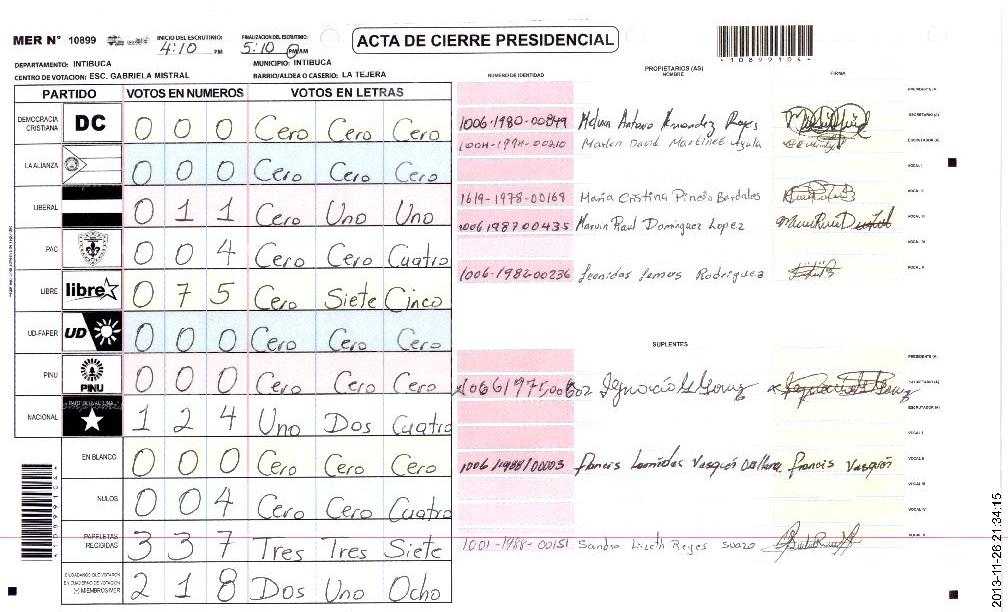 MER N° 10899 INICIO DEL ESCRUTINIO: 4:10 PM FINALIZACION DEL ESCRUTINIO: 5:10 PM AM
ACTA DE CIERRE PRESIDENCIAL
10899104
DEPARTAMENTO: INTIBUCA MUNICIPIO: INTIBUCA
CENTRO DE VOTACION: ESC. GABRIELA MISTRAL BARRIO/ALDEA O CASERIO: LA TEJERA
PARTIDO VOTOS EN NUMEROS VOTOS EN LETRAS
DEMOCRACIA CRISTIANA DC 0 0 0 Cero Cero Cero
LA ALIANZA 0 0 0 Cero Cero Cero
LIBERAL 0 1 1 Cero Uno Uno
PAC 0 0 4 Cero Cero Cuatro
LIBRE libre 0 7 5 Cero Siete Cinco
UD-FAPER UD 0 0 0 Cero Cero Cero
PINU PINU 0 0 0 Cero Cero Cero
NACIONAL 1 2 4 Uno Dos Cuatro
EN BLANCO 0 0 0 Cero Cero Cero
NULOS 0 0 4 Cero Cero Cuatro
PAPELETAS RECIBIDAS 3 3 7 Tres Tres Siete
CIUDADANOS QUE VOTARON EN CUADERNO DE VOTACION (+) MIEMBROS MER 2 1 8 Dos Uno Ocho
PROPIETARIOS (AS)
NUMERO DE IDENTIDAD NOMBRE FIRMA
PRESIDENTE (A)
1006-1980-00849 Antonio Hernandez Reyes SECRETARIO (A)
Marlen David Martinez Ayala ESCRUTADOR (A)
VOCAL I
1619-1978-00169 Maria Cristina Pineda Bardales VOCAL II
1006198700435 Marvin Raul Dominguez Lopez VOCAL III
VOCAL IV
1006-1982-00236 Leonidas Lemus Rodriguez VOCAL V
SUPLENTES
PRESIDENTE (A)
Ignacio SECRETARIO (A)
ESCRUTADOR (A)
VOCAL I
1006/1988/00003 Francis Leonidas Vasquez Francis Vasquez VOCAL II
VOCAL III
VOCAL IV
1001-1988-00151 Sandra Lizeth Reyes Suazo VOCAL V
2013-11-26 21:34:15